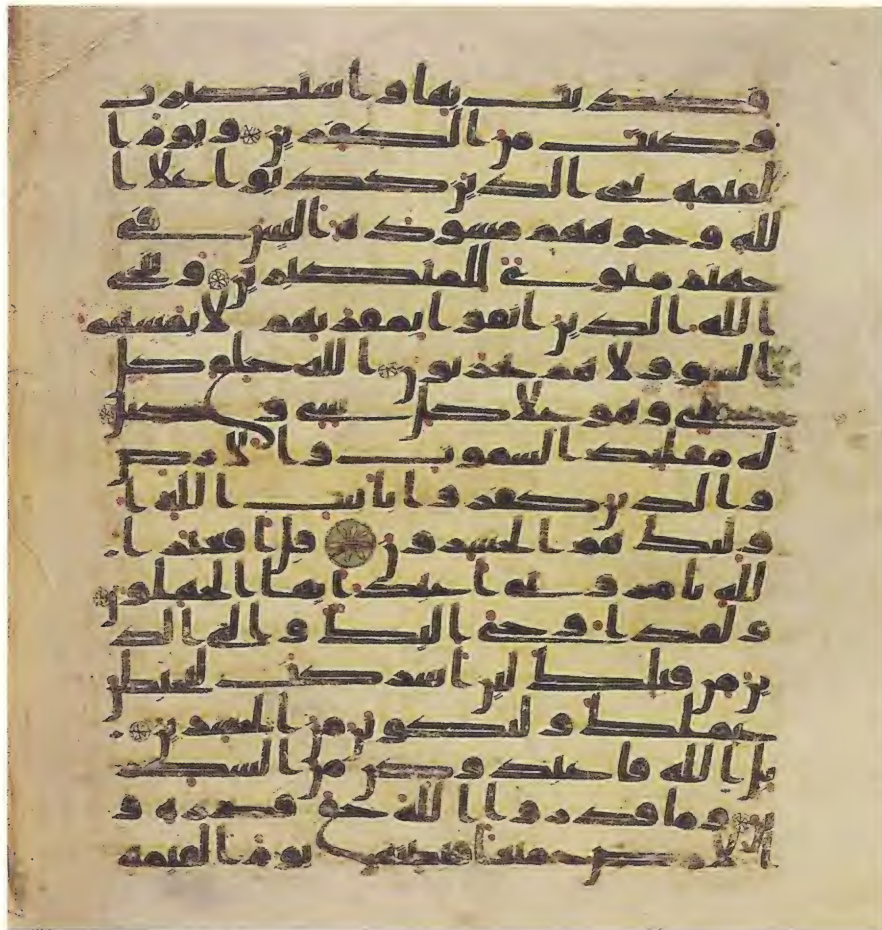 فكذبت بها واستكبرت
وكنت من الكفرين ويوم ا
لقيمه ترى الذين كذبوا على ا
لله وجوههم مسودة اليس في
جهنم مثوى للمتكبرين وينجي
الله الذين اتقوا بمفازتهم لا يمسهم
السو ولا هم يحزنون الله خلق كل
شي وهو على كل شي وكيل
له مقليد السموت والارض
والذين كفروا بايت الله ا
ولئك هم الخسرون قل افغير ا
لله تامروني اعبد ايها الجهلون
ولقد اوحي اليك والى الذ
ين من قبلك لئن اشركت ليحبطن
عملك ولتكونن من الخسرين
بل الله فاعبد وكن من الشكر
ين وما قدروا الله حق قدره و
الارض جميعا قبضته يوم القيمه